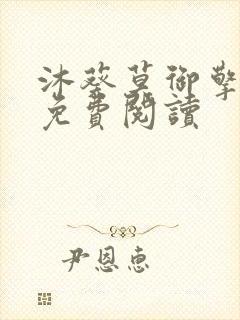 沐葵草御擎
免費閱讀
尹恩惠